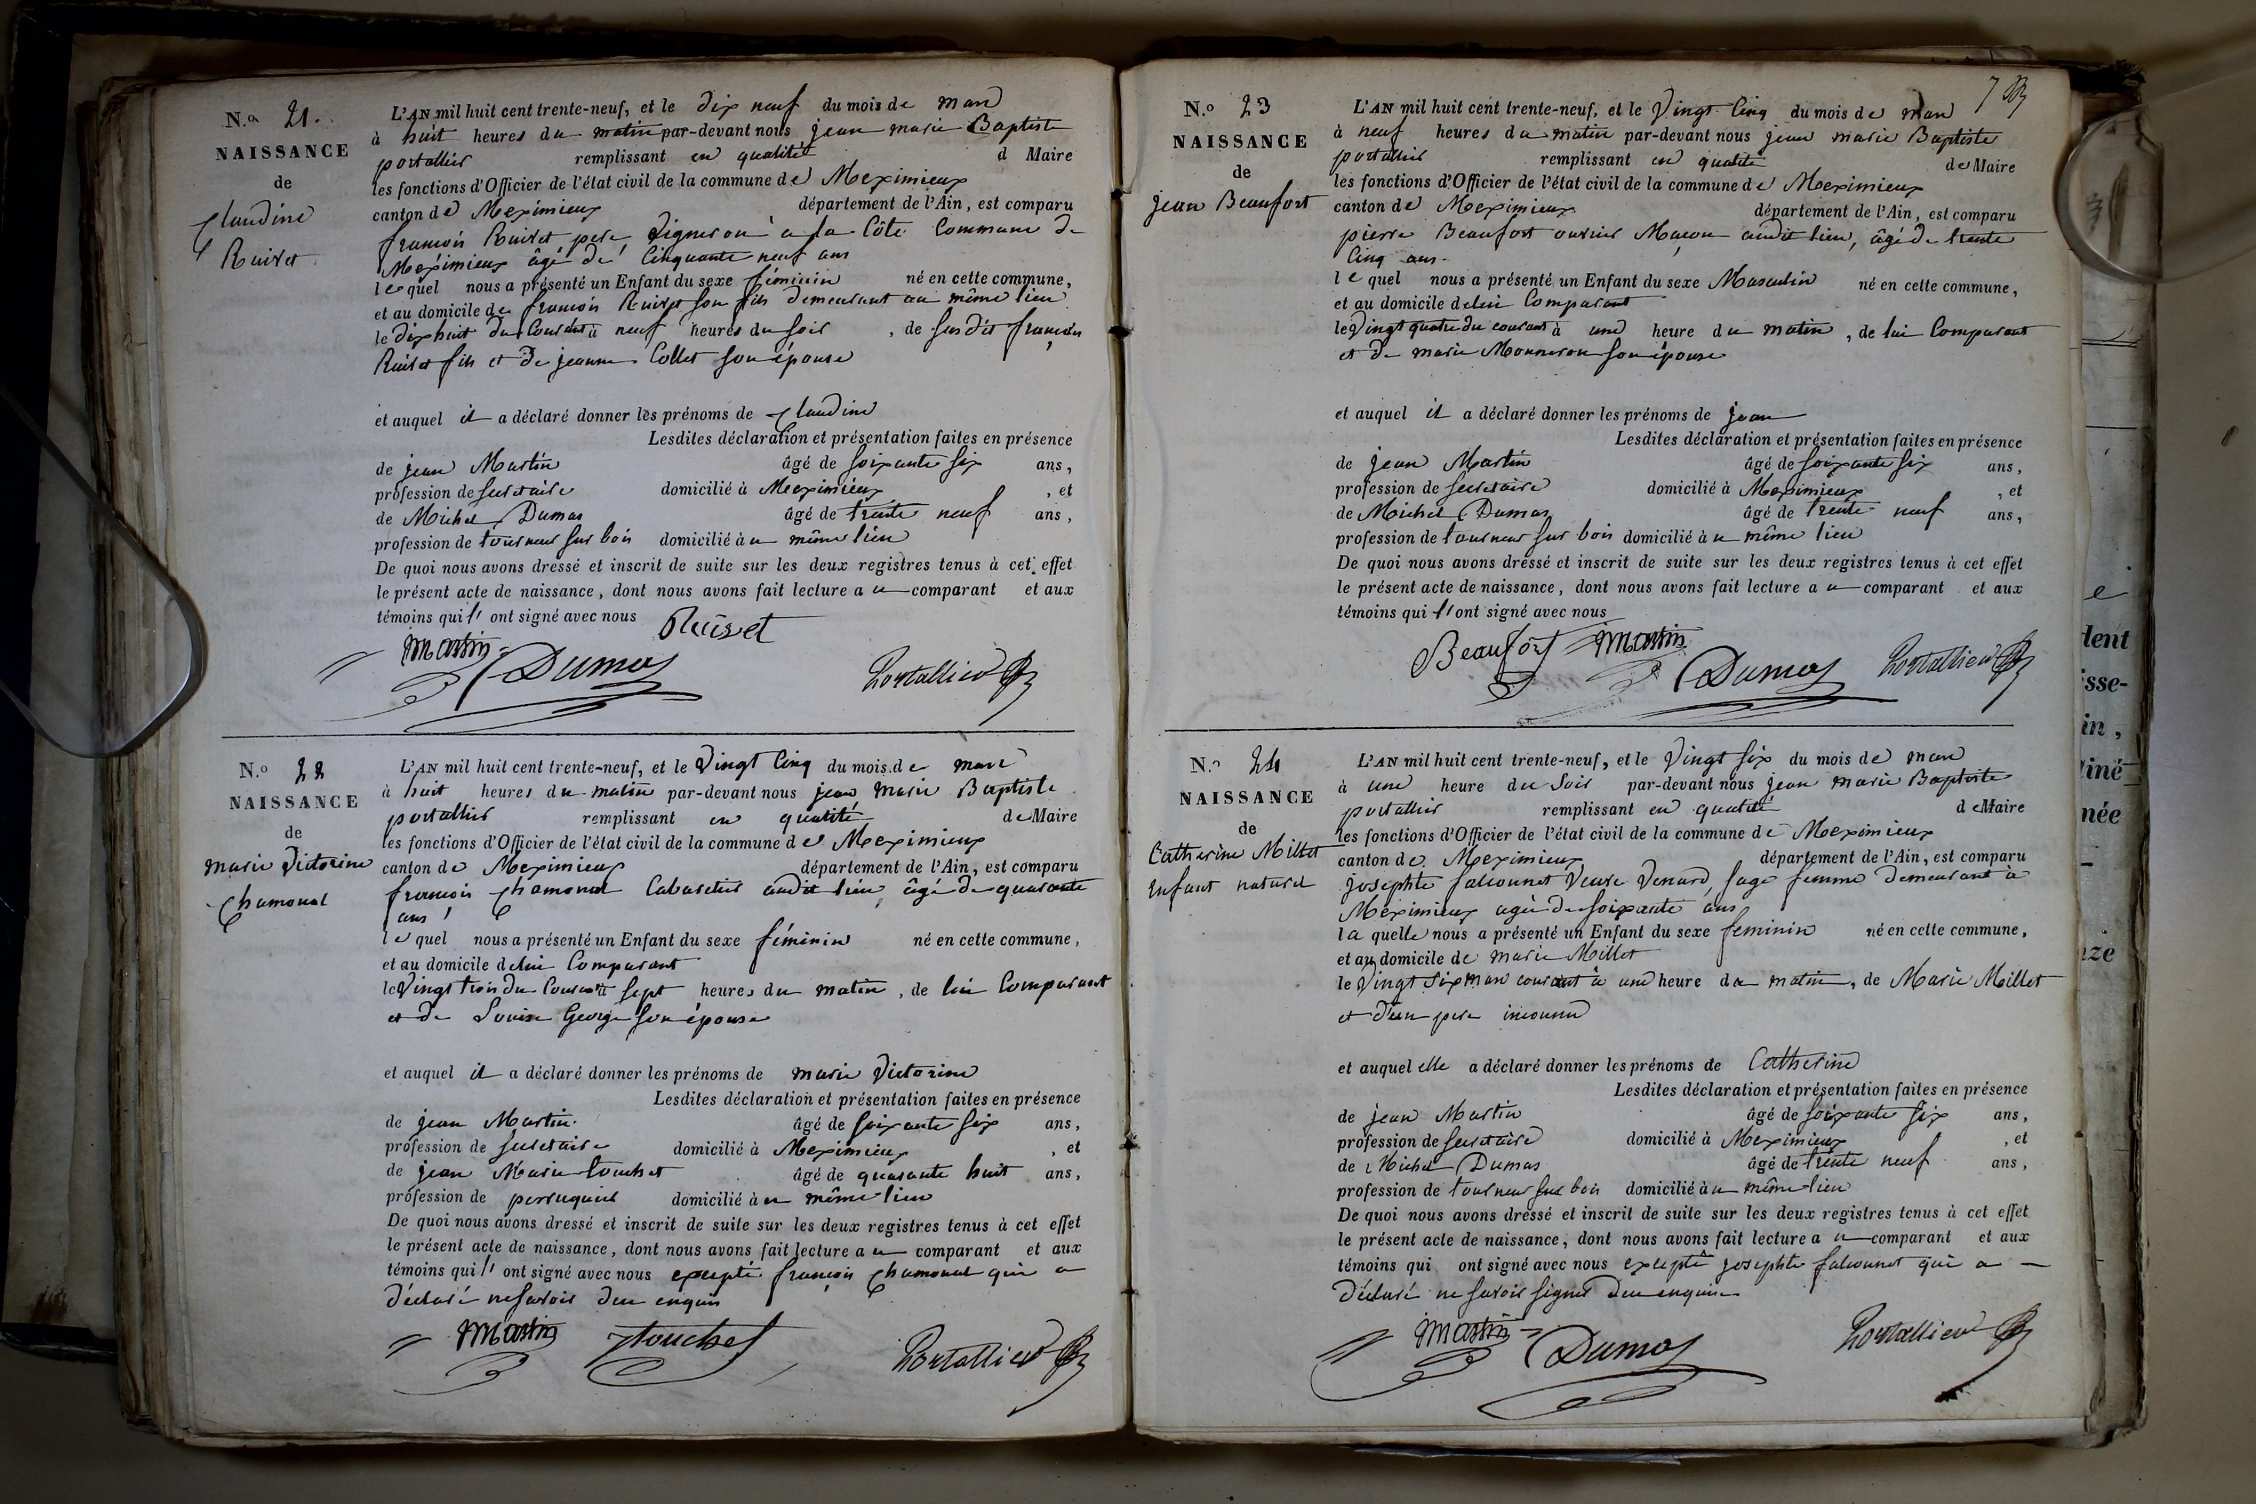 N.o 21.
NAISSANCE
de
Claudine
Ruivet
L'AN mil huit cent trente-neuf, et le dix neuf du mois de mars
à huit heures du matin par-devant nous jean marie Baptiste
portallier remplissant en qualité d Maire
les fonctions d'Officier de l'état civil de la commune de Meximieux
canton de Meximieux département de l'Ain, est comparu
françois Ruivet pere vigneron à la Côte Commune de
Meximieux âgé de Cinquante neuf ans
lequel nous a présenté un Enfant du sexe féminin né en cette commune,
et au domicile de françois Ruivet son fils demeurant au même lieu
le dix huit du Courant à neuf heures du soir , de susdit françois
Ruivet fils et de jeanne Collet son épouse
et auquel il a déclaré donner les prénoms de Claudine
Lesdites déclaration et présentation faites en présence
de jean Martin âgé de soixante six ans,
profession de secretaire domicilié à Meximieux , et
de Michel Dumas âgé de trente neuf ans,
profession de tourneur sur bois domicilié à u même lieu
De quoi nous avons dressé et inscrit de suite sur les deux registres tenus à cet effet
le présent acte de naissance, dont nous avons fait lecture a u comparant et aux
témoins qui l' ont signé avec nous Ruivet
Martin Dumas Portallier
N.o 22
NAISSANCE
de
marie Victorine
Chamonal
L'AN mil huit cent trente-neuf, et le Vingt Cinq du mois de mars
à huit heures du matin par-devant nous jean marie Baptiste
portallier remplissant en qualité de Maire
les fonctions d'Officier de l'état civil de la commune de Meximieux
canton de Meximieux département de l'Ain, est comparu
françois Chamonal Cabaretier audit lieu, âgé de quarante
ans
lequel nous a présenté un Enfant du sexe féminin né en cette commune,
et au domicile de lui Comparant
le Vingt trois du Courant à sept heures du matin , de lui Comparant
et de Louise George son épouse
et auquel il a déclaré donner les prénoms de marie Victorine
Lesdites déclaration et présentation faites en présence
de jean Martin âgé de soixante six ans,
profession de secretaire domicilié à Meximieux , et
de jean Marie touchet âgé de quarante huit ans,
profession de perruquier domicilié à u même lieu
De quoi nous avons dressé et inscrit de suite sur les deux registres tenus à cet effet
le présent acte de naissance, dont nous avons fait lecture a u comparant et aux
témoins qui l' ont signé avec nous excepté françois Chamonal qui a
déclaré ne savoir deu enquis
Martin touchet Portallier
7
N.o 23
NAISSANCE
de
jean Beaufort
L'AN mil huit cent trente-neuf, et le Vingt Cinq du mois de mars
à neuf heures du matin par-devant nous jean marie Baptiste
portallier remplissant en qualité de Maire
les fonctions d'Officier de l'état civil de la commune de Meximieux
canton de Meximieux département de l'Ain, est comparu
pierre Beaufort ouvrier Maçon audit lieu, âgé de trente
Cinq ans
lequel nous a présenté un Enfant du sexe Masculin né en cette commune,
et au domicile de lui Comparant
le Vingt quatre du courant à une heure du matin , de lui Comparant
et de marie Monneron son épouse
et auquel il a déclaré donner les prénoms de jean
Lesdites déclaration et présentation faites en présence
de jean Martin âgé de soixante six ans,
profession de secretaire domicilié à Meximieux , et
de Michel Dumas âgé de trente neuf ans,
profession de tourneur sur bois domicilié à u même lieu
De quoi nous avons dressé et inscrit de suite sur les deux registres tenus à cet effet
le présent acte de naissance, dont nous avons fait lecture a u comparant et aux
témoins qui l' ont signé avec nous
Beaufort Martin Dumas Portallier
N.o 24
NAISSANCE
de
Catherine Millet
Enfant naturel
L'AN mil huit cent trente-neuf, et le Vingt six du mois de mars
à une heure du Soir par-devant nous jean marie Baptiste
portallier remplissant en qualité de Maire
les fonctions d'Officier de l'état civil de la commune de Meximieux
canton de Meximieux département de l'Ain, est comparu
josephte falconnet Veuve Venard, sage femme demeurant à
Meximieux agée de soixante ans
la quelle nous a présenté un Enfant du sexe feminin né en cette commune,
et au domicile de marie Millet
le Vingt six mars courant à une heure du matin , de Marie Millet
et d'un pere inconnu
et auquel elle a déclaré donner les prénoms de Catherine
Lesdites déclaration et présentation faites en présence
de jean Martin âgé de soixante six ans,
profession de secretaire domicilié à Meximieux , et
de Michel Dumas âgé de trente neuf ans,
profession de tourneur sur bois domicilié à u même lieu
De quoi nous avons dressé et inscrit de suite sur les deux registres tenus à cet effet
le présent acte de naissance, dont nous avons fait lecture a u comparant et aux
témoins qui ont signé avec nous excepté josephte falconnet qui a
déclaré ne savoir signer deu enquise
Martin Dumas Portallier